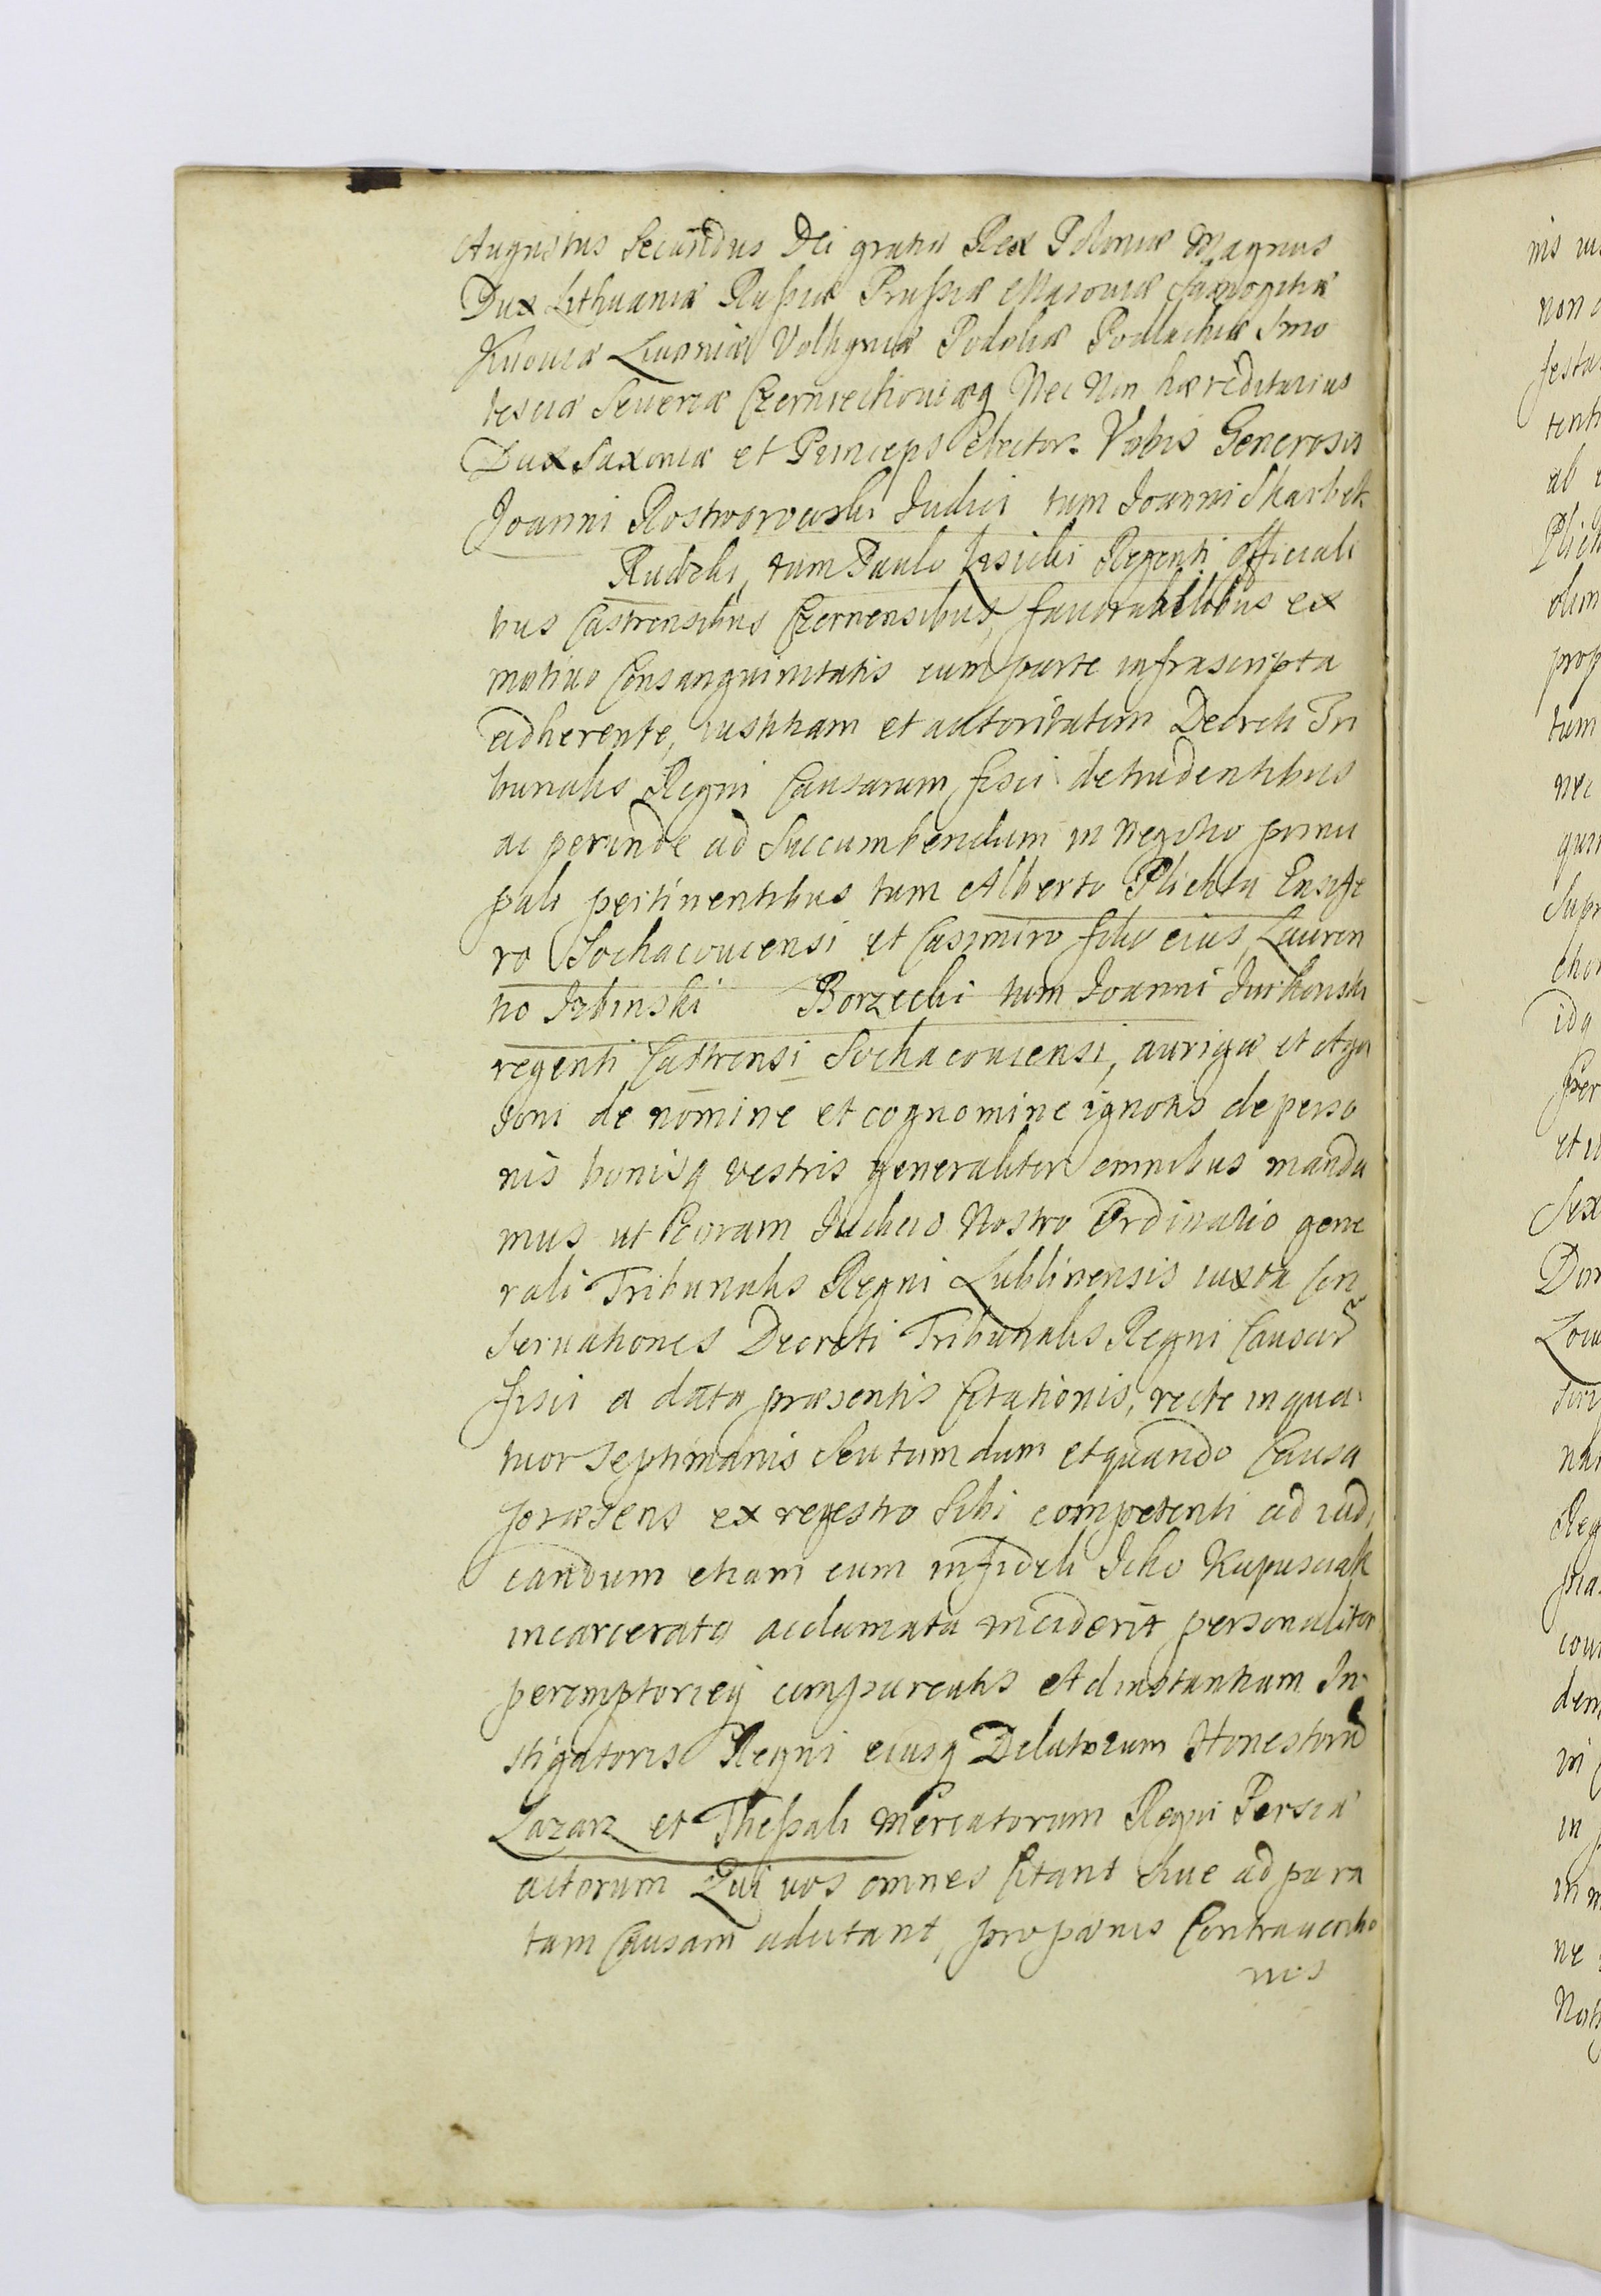 Augustus Secundus Dei gratia Rex Poloniæ Magnus
Dux Lithuaniæ Russiæ Prussiæ Masoviæ Samogitiæ
Kijoviæ Livoniæ Volhyniæ Podoliæ Podlachiæ Smo
lesciæ Severiæ Czerniechoviæq Nec Non hæreditarius
Dux Saxoniæ et Princeps Elector. Vobis Generosis
Joanni Rostworowski Judici tum Joanni Skarbek
Rudzki, tum Paulo Lesicki Regenti officiali
bus Castrensibus Czernensibus, favorabilibus ex
motivo Consanguinitatis cum parte infrascripta
adherente, iustitiam et autoritatem Decreti Tri
bunalis Regni Causarum fisci detrudentibus
ac perinde ad Succumbendum in negotio princi
pali pertinentibus tum Alberto Plichta Ensife
ro Sochacoviensi et Casimiro filio eius, Lauren
tio Izbinski Borzecki tum Joanni Jurkowski
regenti Castrensi Sochacoviensi, aurigæ et Aga
soni de nomine et cognomine ignotis de perso
nis bonisq vestris generaliter omnibus manda
mus ut Coram Judicio Nostro Ordinario gene
rali Tribunalis Regni Lublinensis iuxta Con
servationes Decreti Tribunalis Regni Causar
fisci a data præsentis Citationis, recte in qua
tuor septimanis seu tum dum et quando Causa
præsens ex regestro Sibi competenti ad iudi
candum etiam cum infideli Icko Kapusciak
incarcerato acclamata inciderit personaliter
peremptorieq compareatis Ad instantiam In
stigatoris Regni eiusq Delatorum Honestorũ
Lazarz et Thessali Mercatorum Regni Persiæ
actorum Qui vos omnes Citant sive ad para
tam Causam adcitant, pro pænis Contraventio
nis